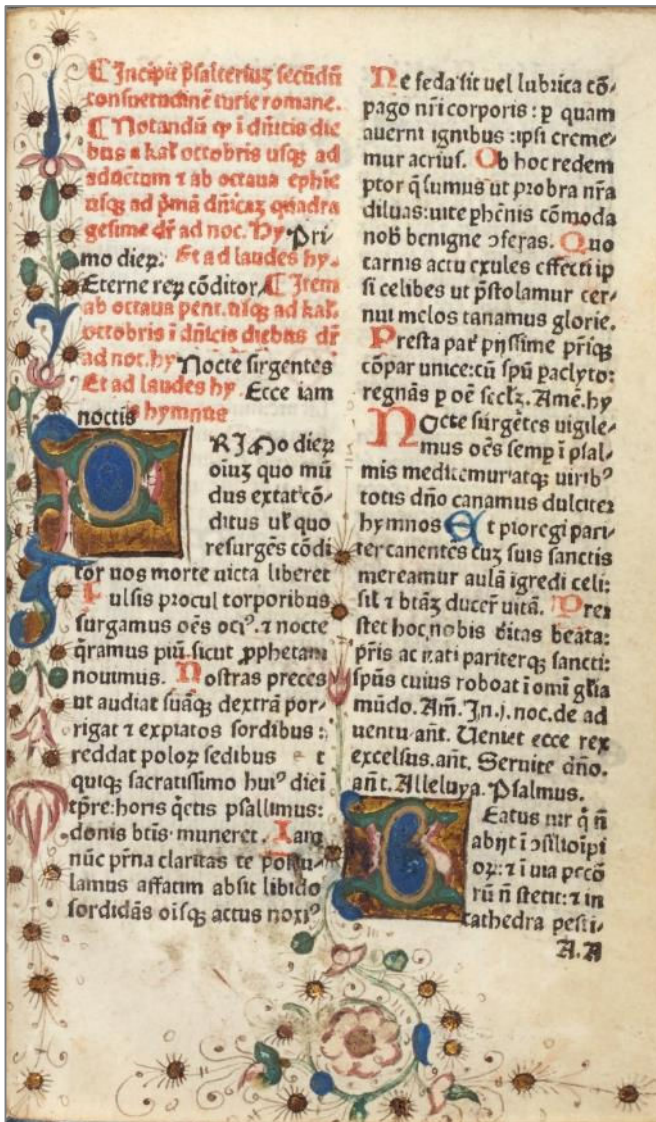 ¶ Incipit psalteriuʒ secūdū
consuetudinē curie romane.
¶ Notandū ꝙ i dn̄icis die
bus a kal̄ octobris usqꝫ ad
aduētum ⁊ ab octaua ephīe
usqꝫ ad p̄mā dn̄icaʒ quadra
gesime dr̄ ad noc. Hy. Pri
mo dieꝝ. Et ad laudes hy.
Eterne reꝝ cōditor. ¶ Item
ab octaua pent. usqꝫ ad kal̄.
octobris i dn̄icis diebus dr̄
ad noc. hy Nocte surgentes
Et ad laudes hy. Ecce iam
noctis hymnus
RIMo dieꝝ
oiuʒ quo mū
dus extat cō-
ditus ul̄ quo
resurgēs cōdi
tor nos morte uicta liberet
Pulsis procul torporibus
surgamus oēs oci⁹. ⁊ nocte
q̄ramus piū. sicut ꝓphetam
nouimus. Nostras preces
ut audiat suāqꝫ dextrā por-
rigat ⁊ expiatos sordibus:
reddat poloꝝ sedibus t
quiqꝫ sacratissimo hui⁹ diei
tp̄re: horis q̄etis psallimus:
donis btīs muneret. Iam
nūc pr̄na claritas te postu-
lamus affatim absit libido
sordidās oīsqꝫ actus noxi⁹
Ne feda sit uel lubrica cō-
pago nr̄i corporis: ꝑ quam
auerni ignibus: ipsi creme-
mur acrius. Ob hoc redem
ptor q̄sumus ut probra nr̄a
diluas: uite phēnis cōmoda
nob̄ benigne ↄferas. Quo
carnis actu exules effecti ip
si celibes ut p̄stolamur cer-
nui melos canamus glorie.
Presta pat̄ pijssime pr̄iqꝫ
cōpar unice: cū spū paclyto:
regnās ꝑ oē secl̄ʒ. Amē. hy
Nocte surgētes uigile-
mus oēs semꝑ i psal-
mis meditemur atqꝫ uirib⁹
totis dn̄o canamus dulciter
hymnos Et pio regi pari
ter canentes cuʒ suis sanctis
mereamur aulā igredi celi:
sil̄ ⁊ btāʒ ducer̄ uitā. Pres
stet hoc nobis d̄itas beata:
pr̄is ac nati pariterqꝫ sancti:
spūs cuius roboat i omī glīa
mūdo. Am̄. In. j. noc. de ad
uentu an̄t. Ueniet ecce rex
excelsus. an̄t. Seruite dn̄o.
an̄t. Alleluya. Psalmus.
Eatus uir q̄ n̄
abijt i ↄsilio īpi
oꝝ: ⁊ i uia pccō
rū n̄ stetit: ⁊ in
cathedra pesti-
A. A